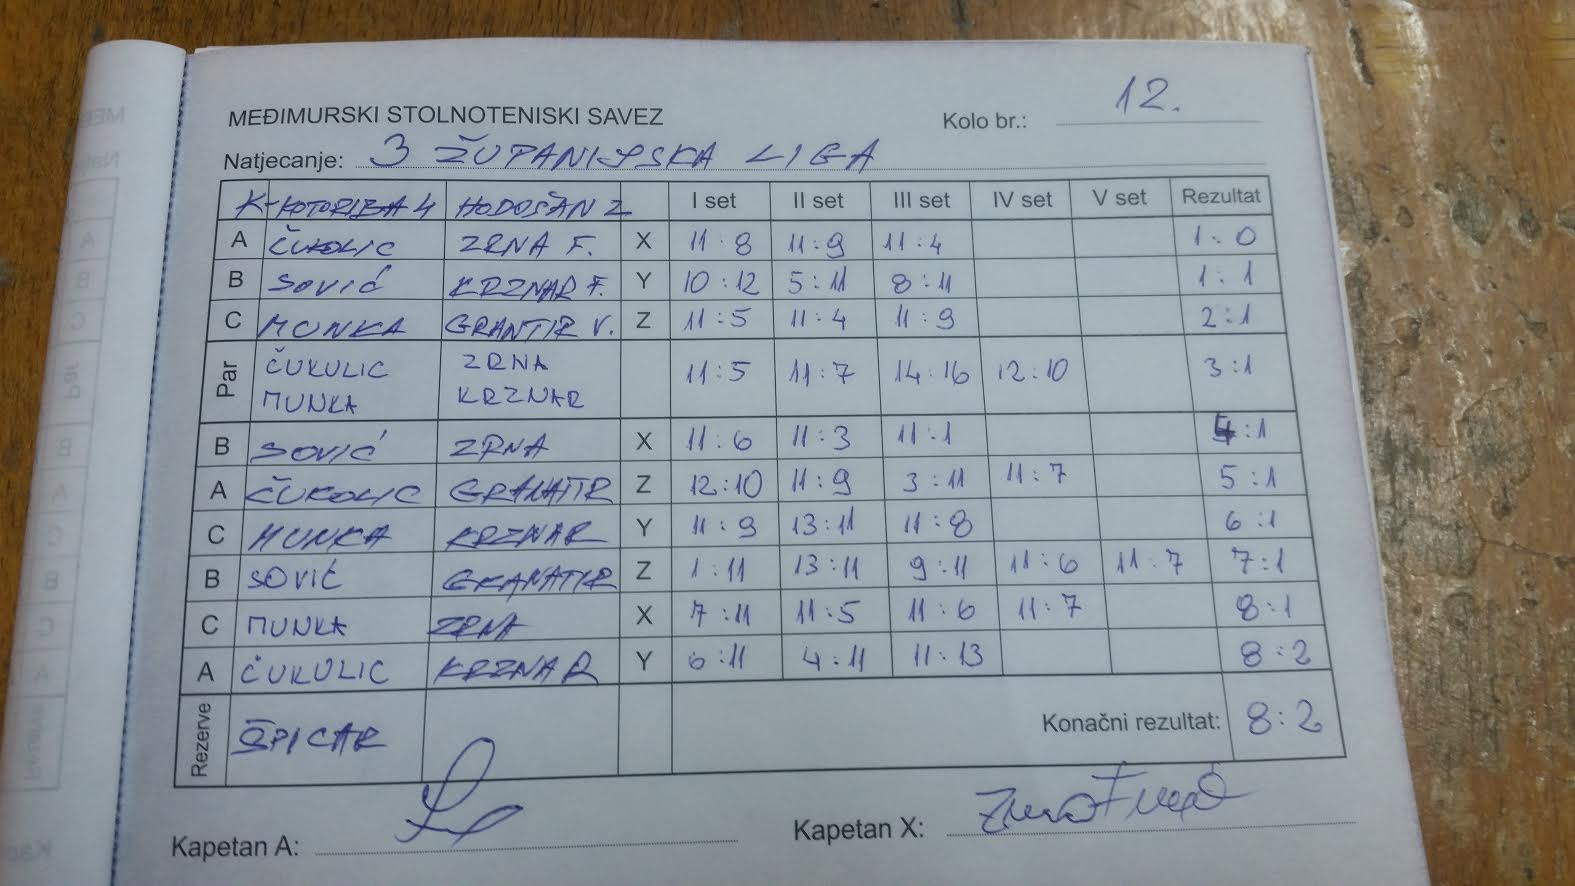 MEĐIMURSKI STOLNOTENISKI SAVEZ
Kolo br.: 12.
Natjecanje: 3 ŽUPANIJSKA LIGA
K-KOTORIBA 4 HODOŠAN 2 I set II set III set IV set V set Rezultat
A ČUKOLIC ZRNA F. X 11:8 11:9 11:4 1:0
B SOVIĆ KRZNAR F. Y 10:12 5:11 8:11 1:1
C MUNKA GRANTIR V. Z 11:5 11:4 11:9 2:1
Par ČUKULIC ZRNA 11:5 11:7 14:16 12:10 3:1
MUNKA KRZNAR
B SOVIĆ ZRNA X 11:6 11:3 11:1 4:1
A ČUKOLIC GRANATIR Z 12:10 11:9 3:11 11:7 5:1
C MUNKA KRZNAR Y 11:9 13:11 11:8 6:1
B SOVIĆ GRANATIR Z 1:11 13:11 9:11 11:6 11:7 7:1
C MUNKA ZRNA X 7:11 11:5 11:6 11:7 8:1
A ČUKULIC KRZNAR Y 6:11 4:11 11:13 8:2
Rezerve ŠPICAR Konačni rezultat: 8:2
Kapetan A: Kapetan X: